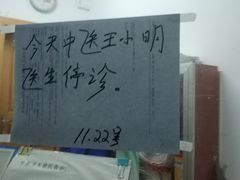 今天中医王小明
医生停诊。
11.22号